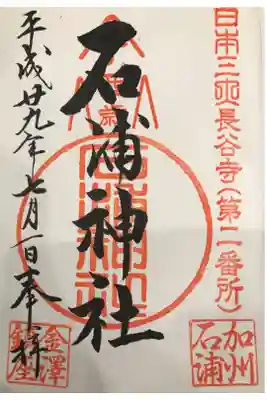 日本三所長谷寺(第二番所)
石浦神社
平成廿九年七月一日奉拝
加州
石浦
金澤
鎮座